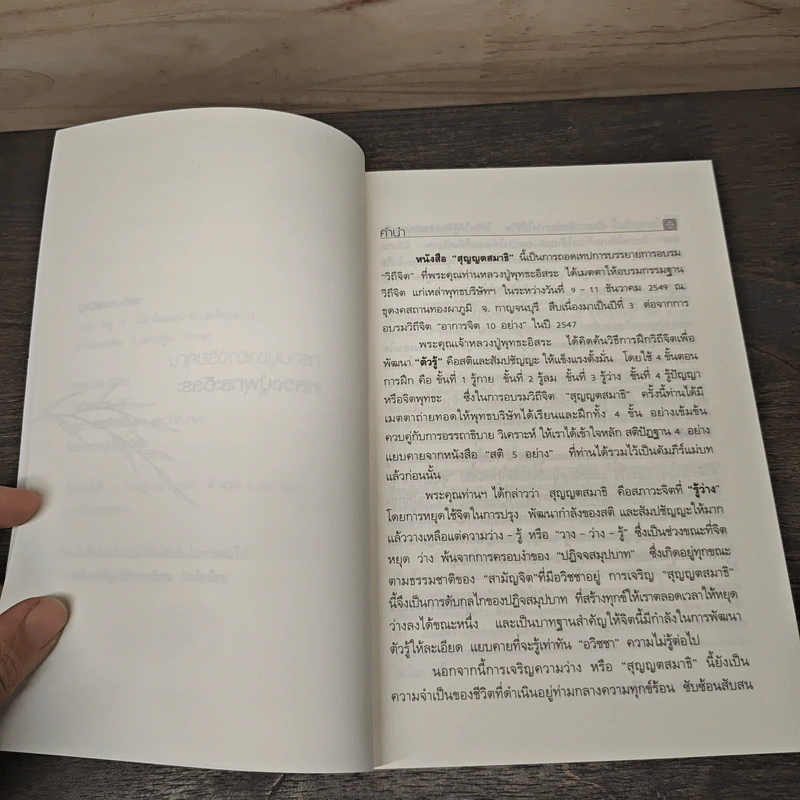 คำนำ
หนังสือ "สุญญตสมาธิ" นี้เป็นการถอดเทปการบรรยายการอบรม
"วิถีจิต" ที่พระคุณท่านหลวงปู่พุทธะอิสระ ได้เมตตาให้อบรมกรรมฐาน
วิถีจิต แก่เหล่าพุทธบริษัทฯ ในระหว่างวันที่ 9 - 11 ธันวาคม 2549 ณ.
ธุดงคสถานทองผาภูมิ จ. กาญจนบุรี สืบเนื่องมาเป็นปีที่ 3 ต่อจากการ
อบรมวิถีจิต "อาการจิต 10 อย่าง" ในปี 2547
พระคุณเจ้าหลวงปู่พุทธะอิสระ ได้คิดค้นวิธีการฝึกวิถีจิตเพื่อ
พัฒนา "ตัวรู้" คือสติและสัมปชัญญะ ให้แข็งแรงตั้งมั่น โดยใช้ 4 ขั้นตอน
การฝึก คือ ขั้นที่ 1 รู้กาย ขั้นที่ 2 รู้ลม ขั้นที่ 3 รู้ว่าง ขั้นที่ 4 รู้ปัญญา
หรือจิตพุทธะ ซึ่งในการอบรมวิถีจิต "สุญญตสมาธิ" ครั้งนี้ท่านได้มี
เมตตาถ่ายทอดให้พุทธบริษัทได้เรียนและฝึกทั้ง 4 ขั้น อย่างเข้มข้น
ควบคู่กับการอรรถาธิบาย วิเคราะห์ ให้เราได้เข้าใจหลัก สติปัฏฐาน 4 อย่าง
แยบคายจากหนังสือ "สติ 5 อย่าง" ที่ท่านได้รวมไว้เป็นคัมภีร์แม่บท
แล้วก่อนนั้น
พระคุณท่านฯ ได้กล่าวว่า สุญญตสมาธิ คือสภาวะจิตที่ "รู้ว่าง"
โดยการหยุดใช้จิตในการปรุง พัฒนากำลังของสติ และสัมปชัญญะให้มาก
แล้ววางเหลือแต่ความว่าง - รู้ หรือ "วาง - ว่าง - รู้" ซึ่งเป็นช่วงขณะที่จิต
หยุด ว่าง พ้นจากการครอบงำของ "ปฏิจจสมุปบาท" ซึ่งเกิดอยู่ทุกขณะ
ตามธรรมชาติของ "สามัญจิต"ที่มีอวิชชาอยู่ การเจริญ "สุญญตสมาธิ"
นี้จึงเป็นการดับกลไกของปฏิจสมุปบาท ที่สร้างทุกข์ให้เราตลอดเวลาให้หยุด
ว่างลงได้ขณะหนึ่ง และเป็นบาทฐานสำคัญให้จิตนี้มีกำลังในการพัฒนา
ตัวรู้ให้ละเอียด แยบคายที่จะรู้เท่าทัน "อวิชชา" ความไม่รู้ต่อไป
นอกจากนี้การเจริญความว่าง หรือ "สุญญตสมาธิ" นี้ยังเป็น
ความจำเป็นของชีวิตที่ดำเนินอยู่ท่ามกลางความทุกข์ร้อน ซับซ้อนสับสน